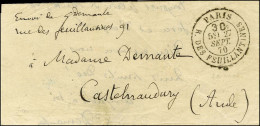 Envoi de Demante
rue des feuillantines 91
à Madame Demante
Castelnaudary
(Aude)
PARIS
30
SEPT.
70
R. DES FEUILLANTINES